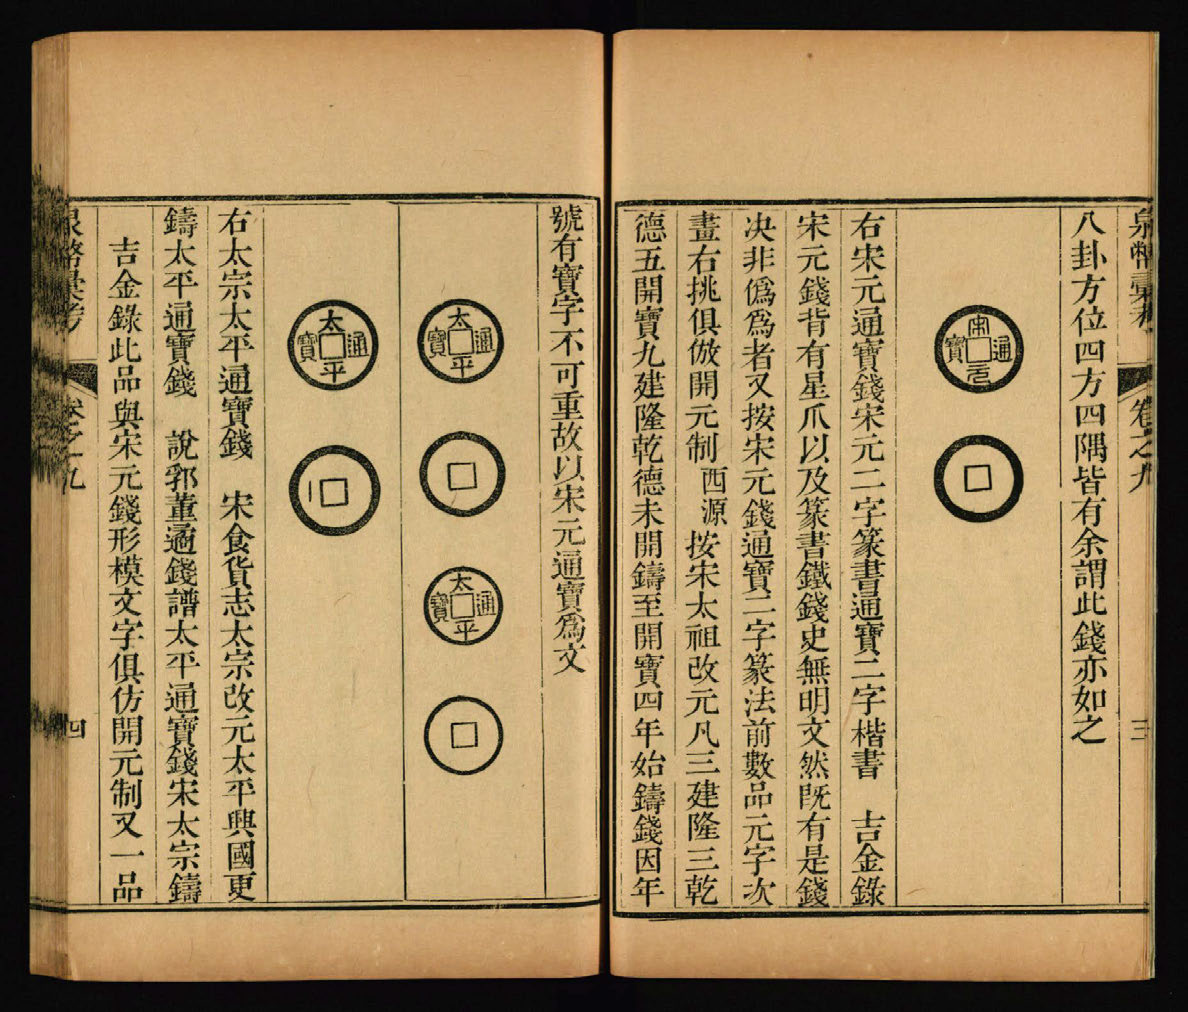 泉幣彙考 卷之九 三
八卦方位四方四隅皆有余謂此錢亦如之
宋元通寶
右宋元通寶錢宋元二字篆書通寶二字楷書 吉金錄
宋元錢背有星爪以及篆書鐵錢史無明文然旣有是錢
決非僞爲者又按宋元錢通寶二字篆法前數品元字次
畫右挑俱倣開元制 西源 按宋太祖改元凡三建隆三乾
德五開寶九建隆乾德未開鑄至開寶四年始鑄錢因年
號有寶字不可重故以宋元通寶爲文
太平通寶
太平通寶
太平通寶
右太宗太平通寶錢 宋食貨志太宗改元太平興國更
鑄太平通寶錢 說郛董逌錢譜太平通寶錢宋太宗鑄
吉金錄此品與宋元錢形模文字俱仿開元制又一品
泉幣彙考 卷之九 四